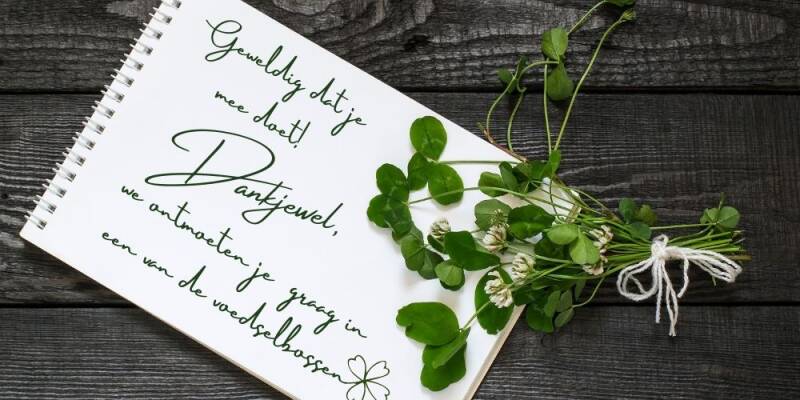 Geweldig dat je
mee doet!
Dankjewel,
we ontmoeten je graag in
een van de voedselbossen